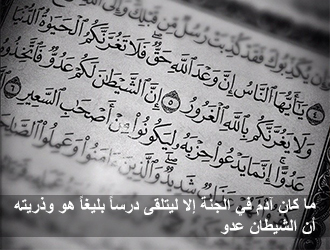 يُكَذِّبُوكَ فَقَدْ كُذِّبَتْ رُسُلٌ مِّن قَبْلِكَ وَإِلَى اللَّهِ
يَٰٓأَيُّهَا النَّاسُ إِنَّ وَعْدَ اللَّهِ حَقٌّ فَلَا تَغُرَّنَّكُمُ الْحَيَوٰةُ الدُّنْيَا
وَلَا يَغُرَّنَّكُم بِاللَّهِ الْغَرُورُ ٥ إِنَّ الشَّيْطَٰنَ لَكُمْ عَدُوٌّ فَاتَّخِذُوهُ
عَدُوًّا إِنَّمَا يَدْعُوا حِزْبَهُ لِيَكُونُوا مِنْ أَصْحَٰبِ السَّعِيرِ ٦
شَدِيدٌ وَالَّذِينَ ءَامَنُوا وَعَمِلُوا
ما كان آدم في الجنة إلا ليتلقى درساً بليغاً هو وذريته
أن الشيطان عدو